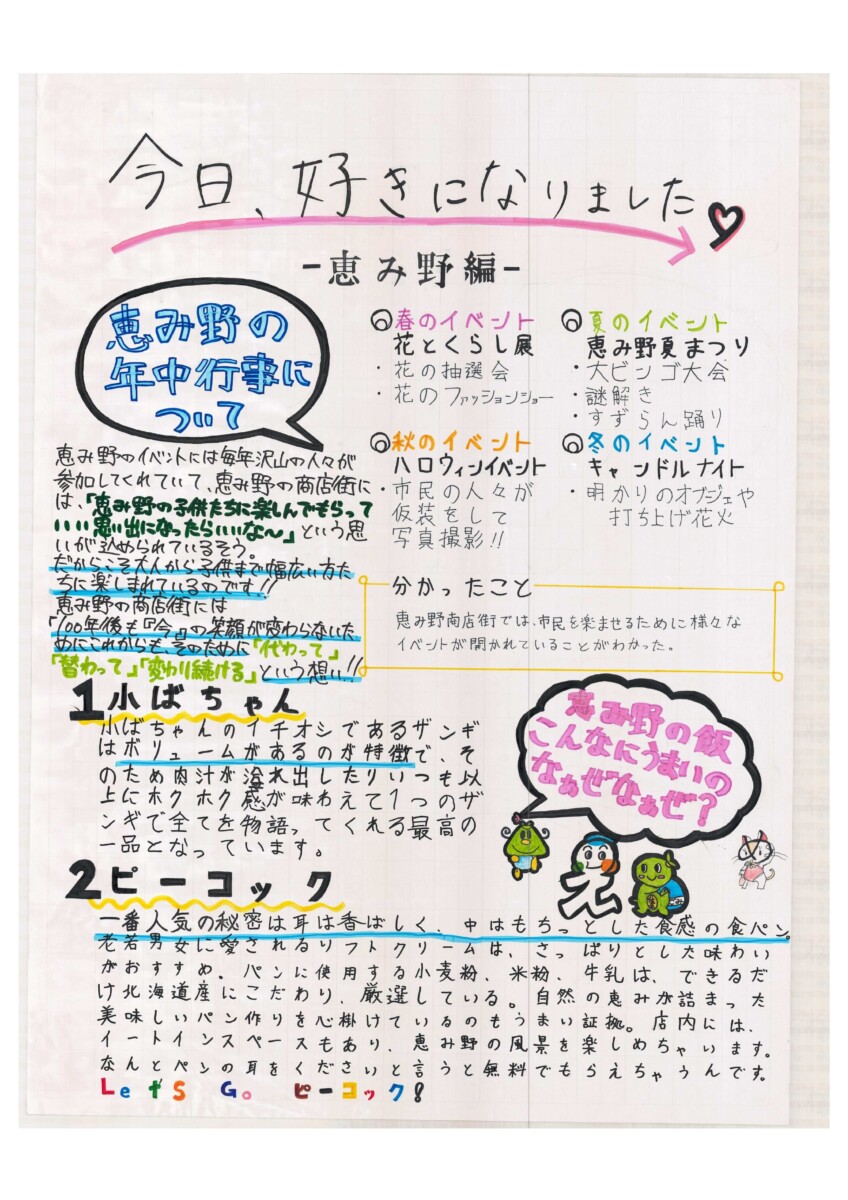 今日、好きになりました
-恵み野編-
恵み野の
年中行事に
ついて
恵み野のイベントには毎年沢山の人々が
参加してくれていて、恵み野の商店街に
は、「恵み野の子供たちに楽しんでもらって
いい思い出になったらいいな〜」という思
いが込められているそう。
だからこそ大人から子供まで幅広い方た
ちに楽しまれているのです!!
恵み野の商店街には
「100年後も『今』の笑顔が変わらないた
めにこれからも、そのために「代わって」
「替わって」「変わり続ける」という想い!!
◎春のイベント
花とくらし展
・花の抽選会
・花のファッションショー
◎夏のイベント
恵み野夏まつり
・大ビンゴ大会
・謎解き
・すずらん踊り
◎秋のイベント
ハロウィンイベント
・市民の人々が
仮装をして
写真撮影!!
◎冬のイベント
キャンドルナイト
・明かりのオブジェや
打ち上げ花火
分かったこと
恵み野商店街では、市民を楽ませるために様々な
イベントが開かれていることがわかった。
1小ばちゃん
小ばちゃんのイチオシであるザンギ
はボリュームがあるのが特徴で、そ
のため肉汁が溢れ出したりいつも以
上にホクホク感が味わえて1つのザ
ンギで全てを物語ってくれる最高の
一品となっています。
恵み野の飯
こんなにうまいの
なぁぜなぁぜ?
え
2ピーコック
一番人気の秘密は耳は香ばしく、中はもちっとした食感の食パン。
老若男女に愛されるソフトクリームは、さっぱりとした味わい
がおすすめ。パンに使用する小麦粉、米粉、牛乳は、できるだ
け北海道産にこだわり、厳選している。自然の恵みが詰まった
美味しいパン作りを心掛けているのもうまい証拠。店内には、
イートインスペースもあり、恵み野の風景を楽しめちゃいます。
なんとパンの耳をくださいと言うと無料でもらえちゃうんです。
Let's Go ピーコック!